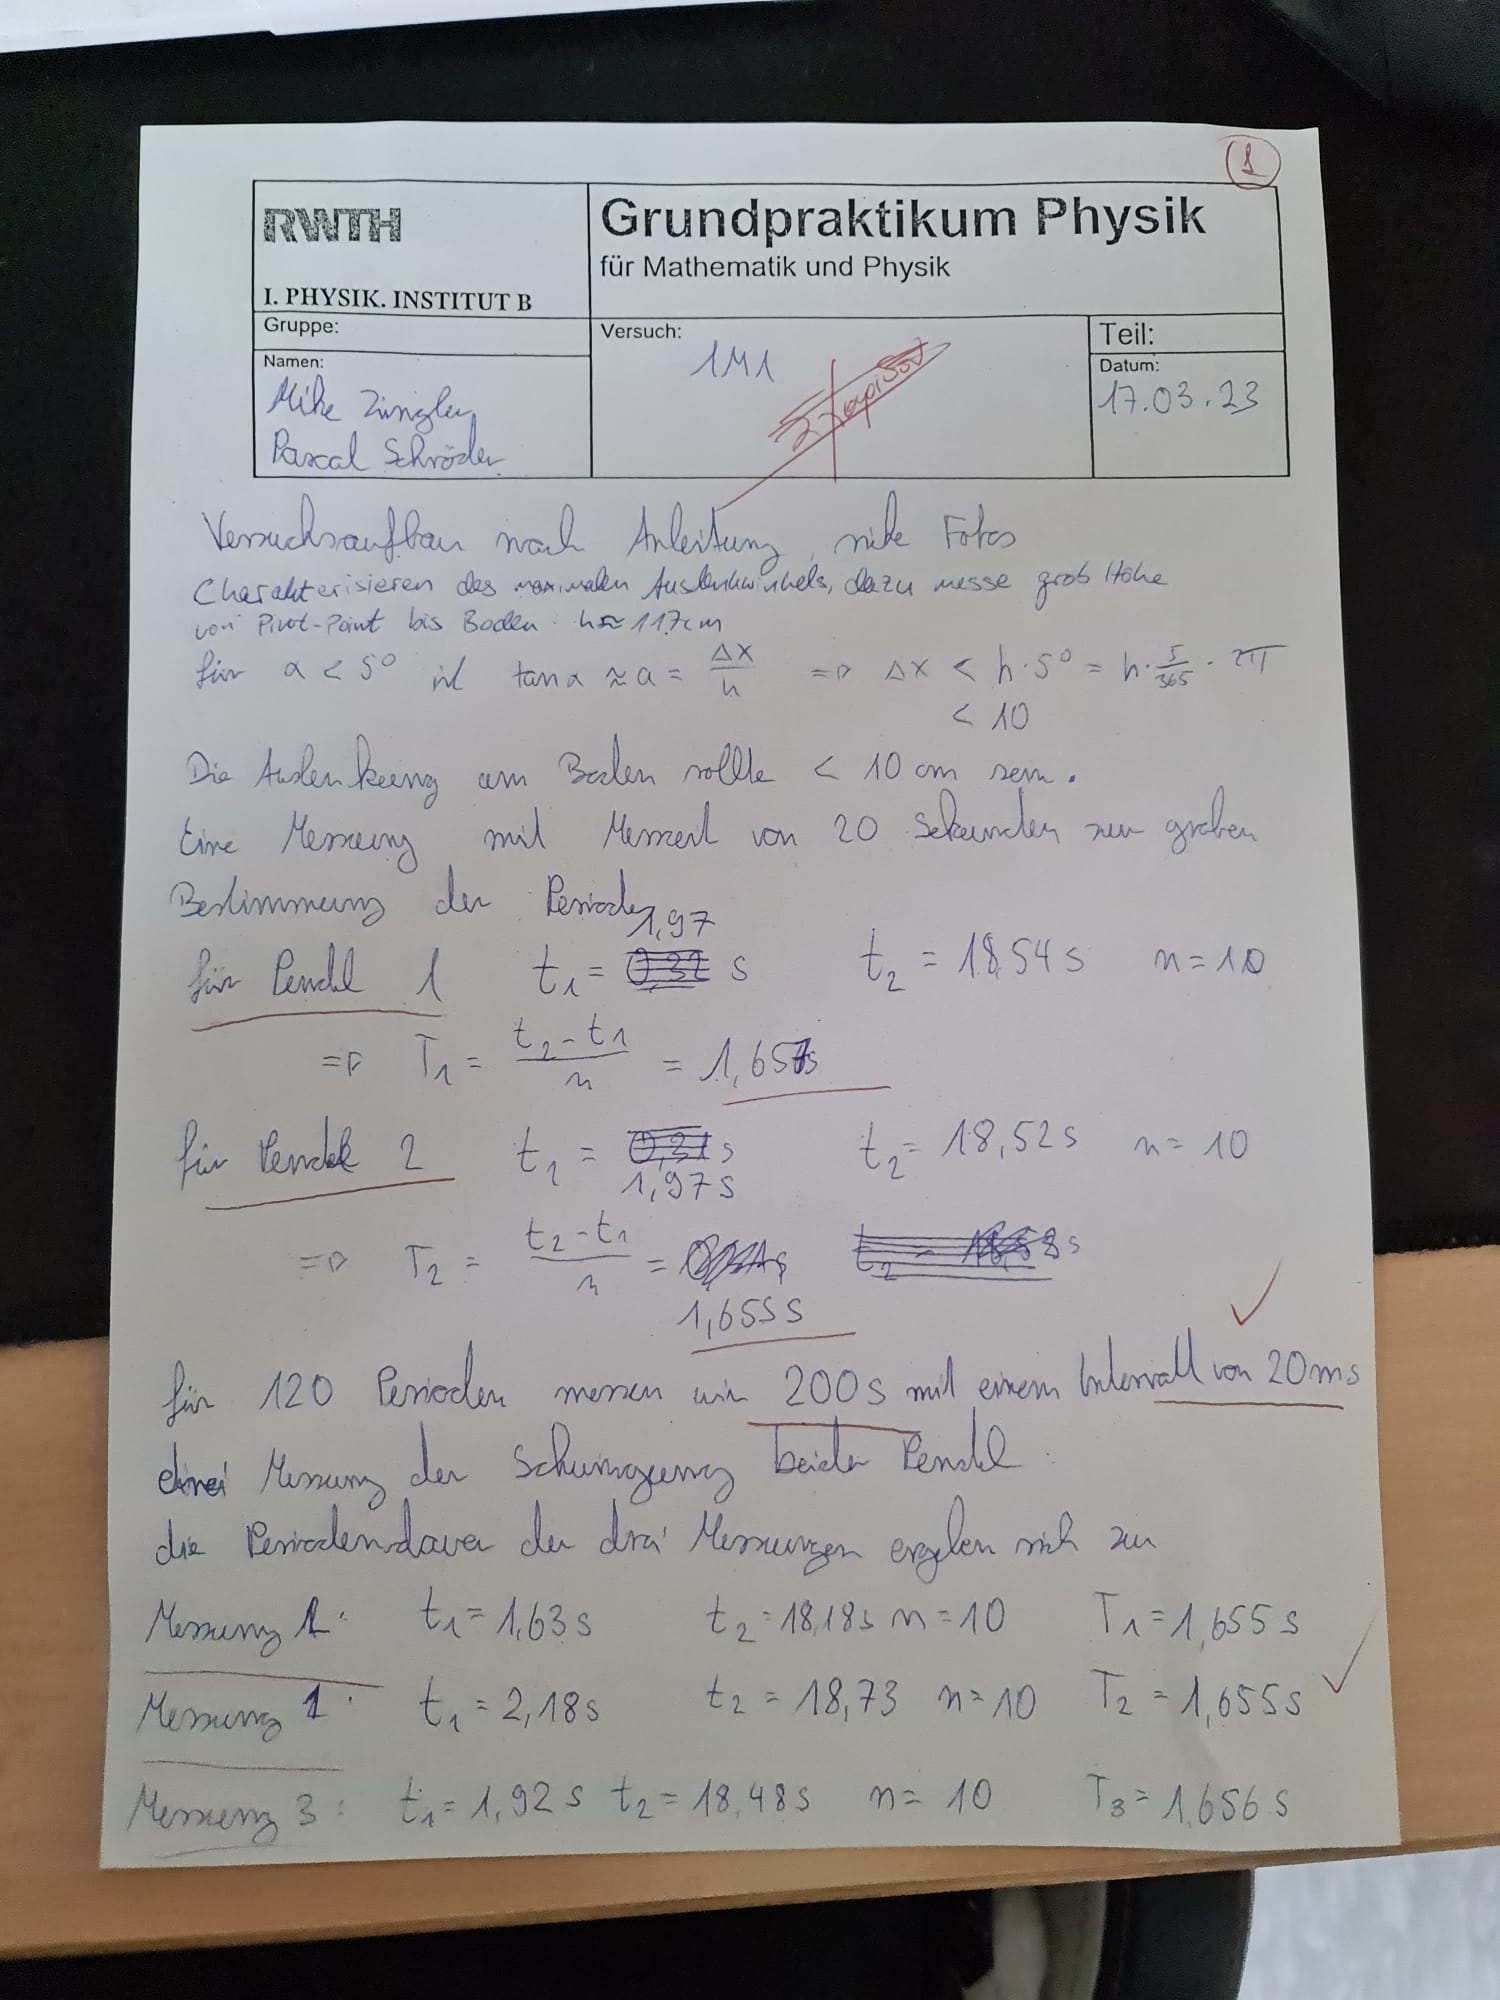 1
RWTH
I. PHYSIK. INSTITUT B
Grundpraktikum Physik
für Mathematik und Physik
Gruppe:
Versuch:
1M1
Teil:
Namen:
Mike Zingler
Pascal Schröder
Datum:
17.03.23
Versuchsaufbau nach Anleitung, siehe Fotos
Charakterisieren des maximalen Auslenkwinkels, dazu messe grob Höhe
von Pivot-Point bis Boden: h≈117cm
für α < 5° ist tanα ≈ α = Δx/h => Δx < h·5° = h·5/365·2π
< 10
Die Auslenkung am Boden sollte < 10 cm sein.
Eine Messung mit Messzeit von 20 Sekunden zur groben
Bestimmung der Periode
für Pendel 1 t₁ = 1,97 s t₂ = 18,54 s n = 10
=> T₁ = (t₂ - t₁)/n = 1,657s
für Pendel 2 t₁ = 1,97s t₂ = 18,52s n = 10
=> T₂ = (t₂ - t₁)/n =
1,655s
für 120 Perioden messen wir 200s mit einem Intervall von 20ms
drei Messung der Schwingung beider Pendel.
die Periodendauer der drei Messungen ergeben sich zu
Messung 1: t₁ = 1,63s t₂ = 18,18s n = 10 T₁ = 1,655s
Messung 1: t₁ = 2,18s t₂ = 18,73 n = 10 T₂ = 1,655s
Messung 3: t₁ = 1,92s t₂ = 18,48s n = 10 T₃ = 1,656s